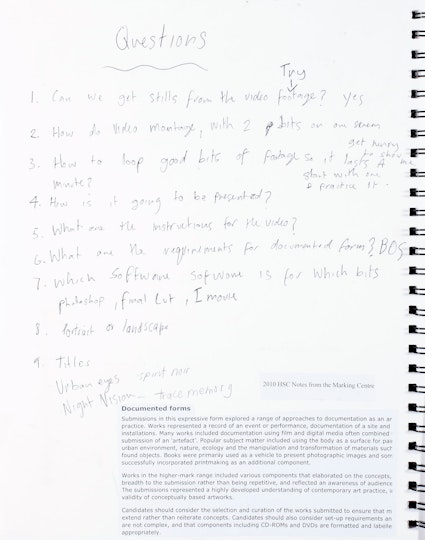 Questions
Try
1. Can we get stills from the video footage? yes
2. How do video montage, with 2 bits on one screen
3. How to loop good bits of footage so it lasts a
get henry to show me
minute?
start with one
& practice it.
4. How is it going to be presented?
5. What are the instructions for the video?
6. What are the requirements for documented form? BOS
7. Which software sofware is for which bits
photoshop, final cut, I movie
8. Portrait or landscape
9. Titles
Urban eyes spirit noir
Night Vision - trace memory
2010 HSC Notes from the Marking Centre
Documented forms
Submissions in this expressive form explored a range of approaches to documentation as an ar
practice. Works represented a record of an event or performance, documentation of a site and
installations. Many works included documentation using film and digital media often combined
submission of an 'artefact'. Popular subject matter included using the body as a surface for pai
urban environment, nature, ecology and the manipulation and transformation of materials such
found objects. Books were primarily used as a vehicle to present photographic images and som
successfully incorporated printmaking as an additional component.
Works in the higher-mark range included various components that elaborated on the concepts,
breadth to the submission rather than being repetitive, and reflected an awareness of audience
The submissions represented a highly developed understanding of contemporary art practice, a
validity of conceptually based artworks.
Candidates should consider the selection and curation of the works submitted to ensure that m
extend rather than reiterate concepts. Candidates should also consider set-up requirements an
are not complex, and that components including CD-ROMs and DVDs are formatted and labelle
appropriately.